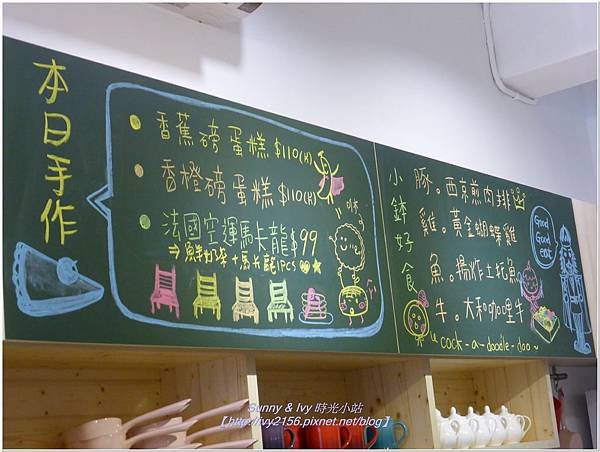 本日手作
香蕉磅蛋糕 $110(片)
香橙磅蛋糕 $110(片)
法國空運馬卡龍 $99
小缽好食
豚。西京煎肉排
雞。黃金蝴蝶雞
魚。揚炸土托魚
牛。大和咖哩牛
Good
Good
eat
cock-a-doodle-doo~
Sunny & Ivy 時光小站
【http://ivy2156.pixnet.net/blog】